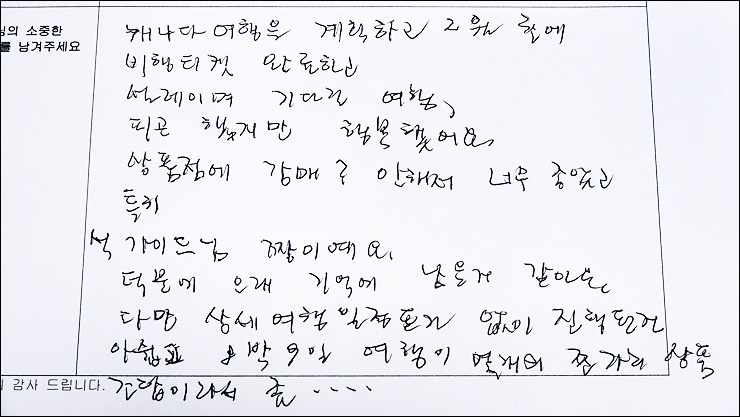 님의 소중한
를 남겨주세요
캐나다 여행을 계획하고 2월 달에
비행티켓 완료하고
설레이며 기다린 여행,
피곤 했지만 행복했어요.
상품점에 강매 안해서 너무 좋았고
특히
석 가이드님 짱이예요.
덕분에 오래 기억에 남을거 같아요.
다만 상세여행일정표가 없이 진행된건
아쉽고 8박9일 여행이 몇개의 상품
감사 드립니다.
이라서 좀 ....